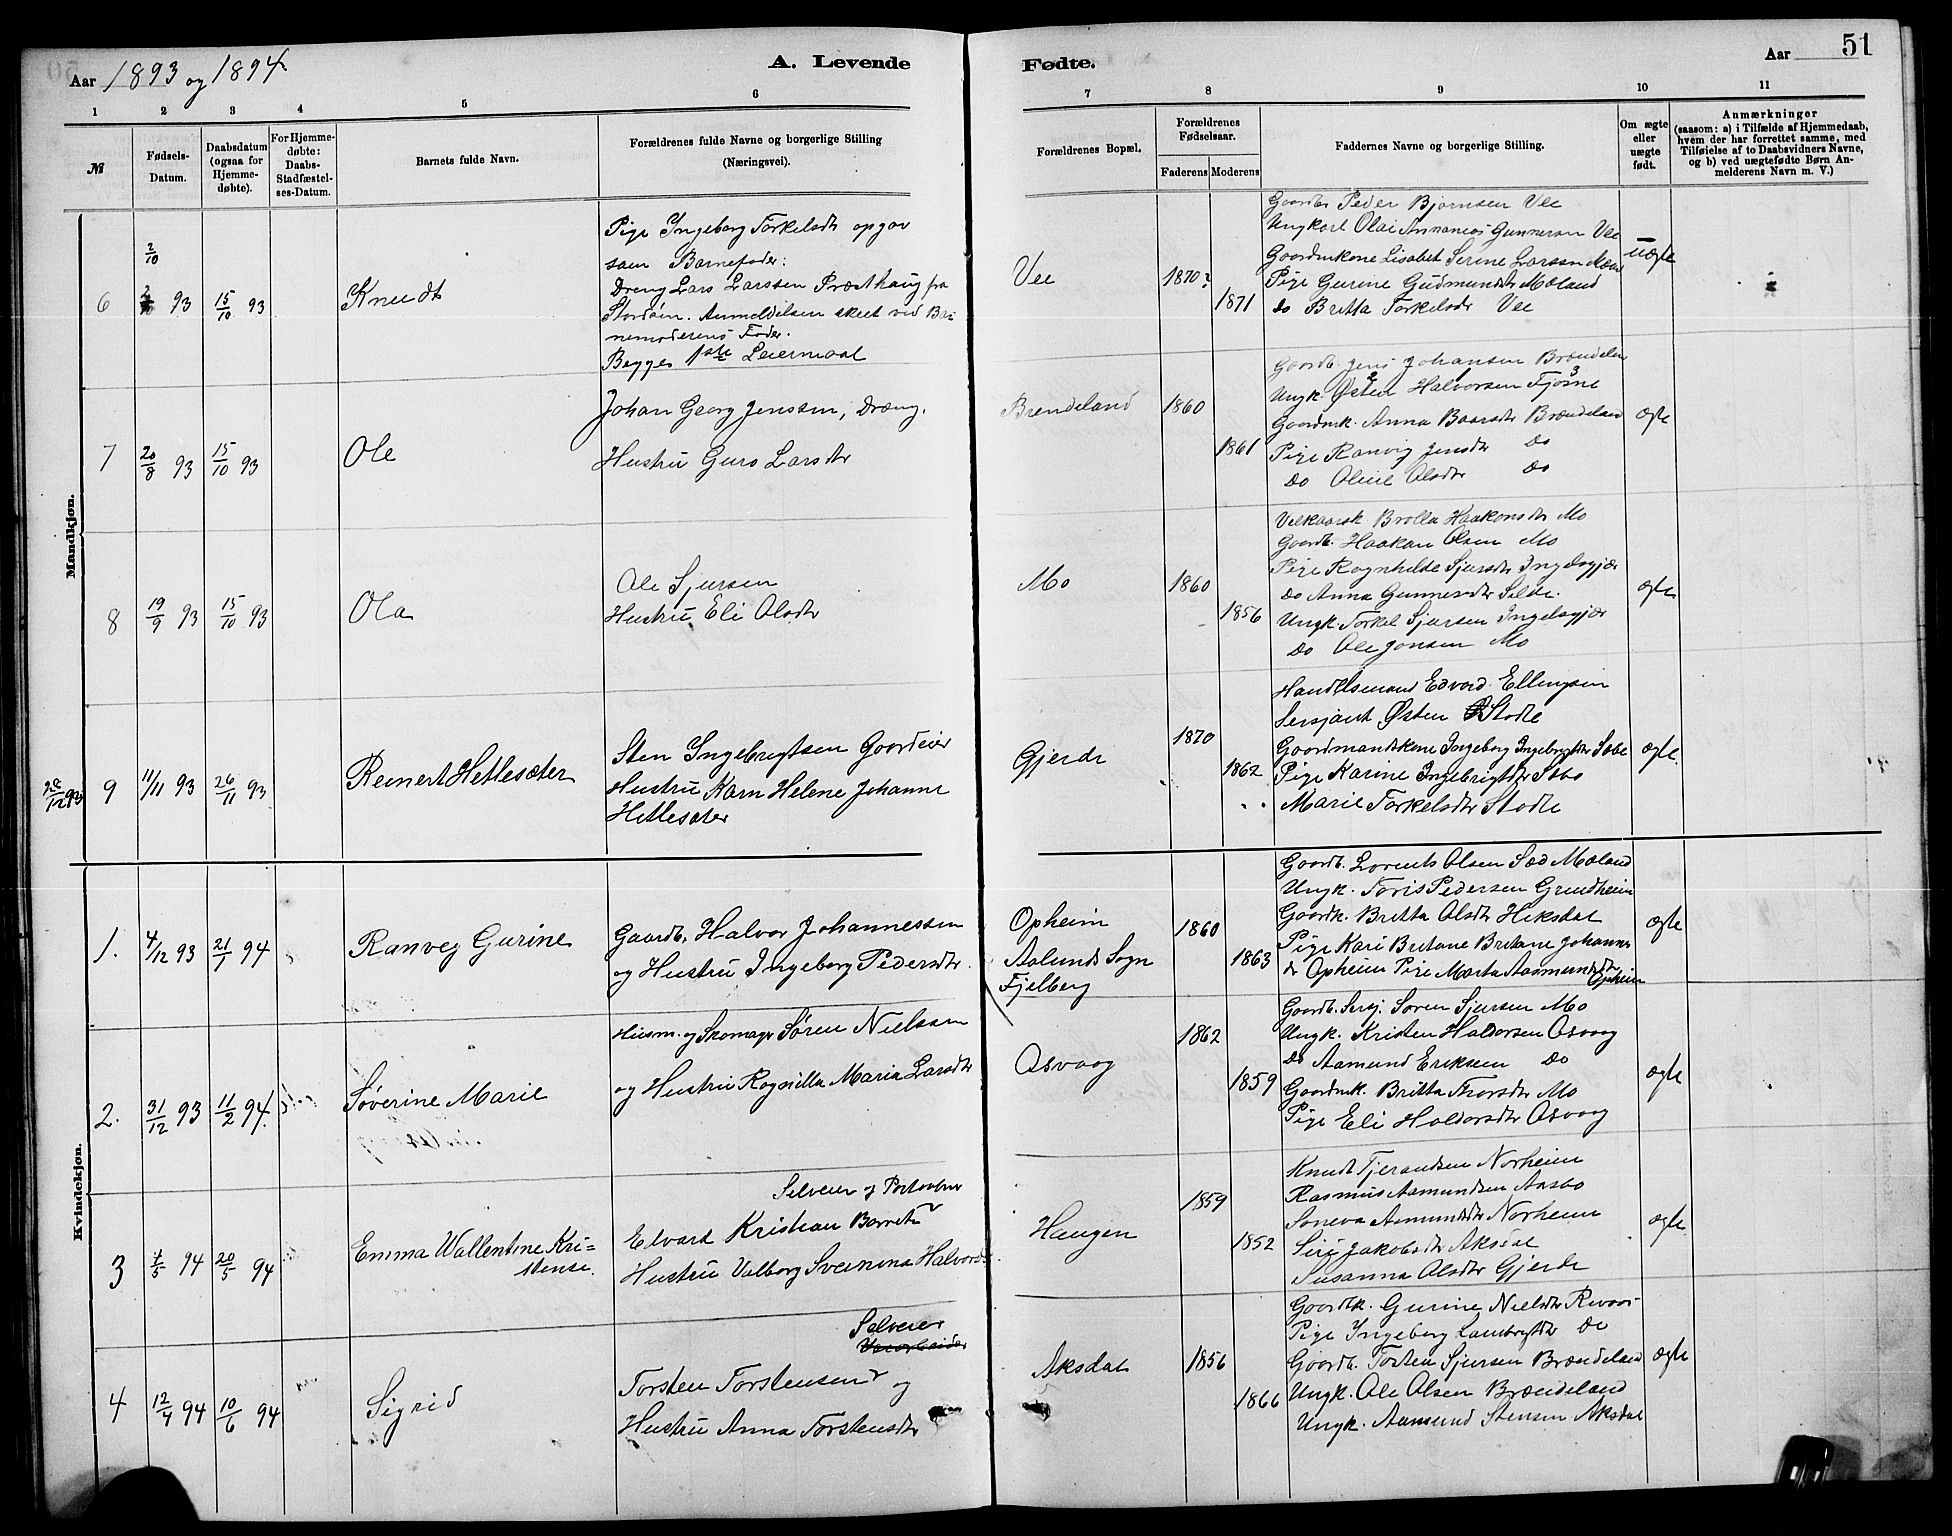 Aar 1893 og 1894
A. Levende
Fødte.
Aar
51
1 2 3 4 5 6
7 8 9 10 11
№
Fødsels-
Datum.
Daabsdatum
(ogsaa for
Hjemme-
døbte).
For Hjemme-
døbte:
Daabs-
Stadfæstel-
ses-Datum.
Barnets fulde Navn.
Forældrenes fulde Navne og borgerlige Stilling
(Næringsvei).
Forældrenes Bopæl.
Forældrenes
Fødselsaar.
Faderens Moderens
Faddernes Navne og borgerlige Stilling.
Om ægte
eller
uægte
født.
Anmærkninger
(saasom: a) i Tilfælde af Hjemmedaab,
hvem der har forrettet samme, med
Tilføielse af to Daabsvidners Navne,
og b) ved uægtefødte Børn An-
melderens Navn m. V.)
Mandkjøn.
6
2/10
93
15/10 93
Knudt
Pige Ingeborg Torkelsdtr opgav
som Barnefader:
Dreng Lars Larssen Præsthaug fra
Stordøen. Anmeldelsen skeet ved Bar-
nemoderens Fader.
Begges 1ste Leiermaal
Vee
1870?
1871
Gaardbr Peder Bjørnsen Vee
Ungkarl Olai Annanias Gunnersen Vee
Gaardmkone Lisabet Serine Larssen
Pige Gurine Gudmundsdtr Mæland
do Britta Torkelsdtr Vee
uægte
7
20/8 93
15/10 93
Ole
Johan Georg Jenssen, Dræng.
Hustru Guro Larsdtr
Brendeland
1860
1861
Gaardb. Jens Johansen Brændelan
Ungk. Østen Halvorsen Fjøsne
Gaardmk. Anna Baarsdtr Brændelan
Pige Ranvig Jensdtr Do
Do Oline Olsdtr Do
ægte
8
19/9 93
15/10 93
Ola
Ole Sjursen
Hustru Eli Olsdtr
Mo
1860
1856
Velkaarsk Brolla Haakonsdtr Mo
Gaardb. Haakon Olsen Mo
Pige Ragnhilde Sjursdtr Ingelsgjær
do Anna Gunnersdtr Silde.
Ungk. Torkel Sjursen Ingelsgjær
Do Ole Jonsen Mo
ægte
9
11/11 93
26/11 93
Reinert Hetlesæter
Sten Ingebrigtsen Gaardeier
Hustru Karn Helene Johanne
Hetlesæter
Gjerde
1870
1862
Handelsmand Edvard Ellingsen
Sersjant Østen Stodle
Gaardmandskone Ingeborg Ingebrigtsdtr Sæbe
Pige Karine Ingebrigtsdtr Sæbø
" " Marie Torkelsdtr Stodle
ægte
Kvindekjøn.
1.
4/12 93
21/1 94
Ranveg Gurine
Gaardb. Halvor Johannessen
og Hustru Ingeborg Pedersdtr.
Opheim
Aalunds Sogn
Fjelberg
1860
1863
Gaardb. Lorents Olsen Sæd Mæland
Ungk. Toris Pedersen Grindheim
Gaardk. Britta Olsdtr Heksdal
Pige Kari Britane Britane Johannes
dr Opheim Pige Marta Aasmundsdtr
Opheim
ægte
2.
31/12 93
11/2 94.
Søverine Marie
Husm. og Skomager Søren Nielssen
og Hustru Ragnilla Maria Larsdtr
Osvaag
1862
1859
Gaardb. Sersj. Søren Sjursen Mo
Ungk. Kristen Haldorsen Osvaag
Do Aamund Eriksen Do
Gaardmk. Britta Thorsdtr Mo
Pige Eli Haldorsdtr Osvaag
ægte
3
1/5 94
20/5 94
Emma Wallentine Kri-
stense.
Selveier og Postaabner
Edvard Kristian Barrets
Hustru Valborg Sverinna Halvords.
Haugen
1859
1852
Knudt Tjerandsen Norheim
Rasmus Aamundsen Aasbo
Soneva Aamundsdtr Norheim
Siri Jakobsdtr Aksdal
Susanna Olsdtr Gjerde
ægte
4
12/4 94
10/6 94
Sigrid
Selveier
Torsten Torstensen og
Hustru Anna Torstensdtr
Aksdal
1856
1866
Gaardk. Gurine Nielsdtr
Pige Ingeborg Lambregtsdtr Do
Gaardb. Tosten Sjursen Brændeland
Ungk. Ole Olsen Brændeland
Ungk. Aamund Stensen Aksdal
ægte